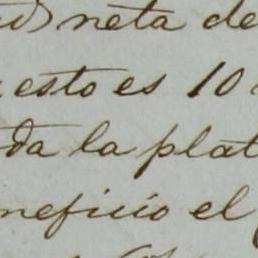 neta de
esto es 10
da la plat
neficio el